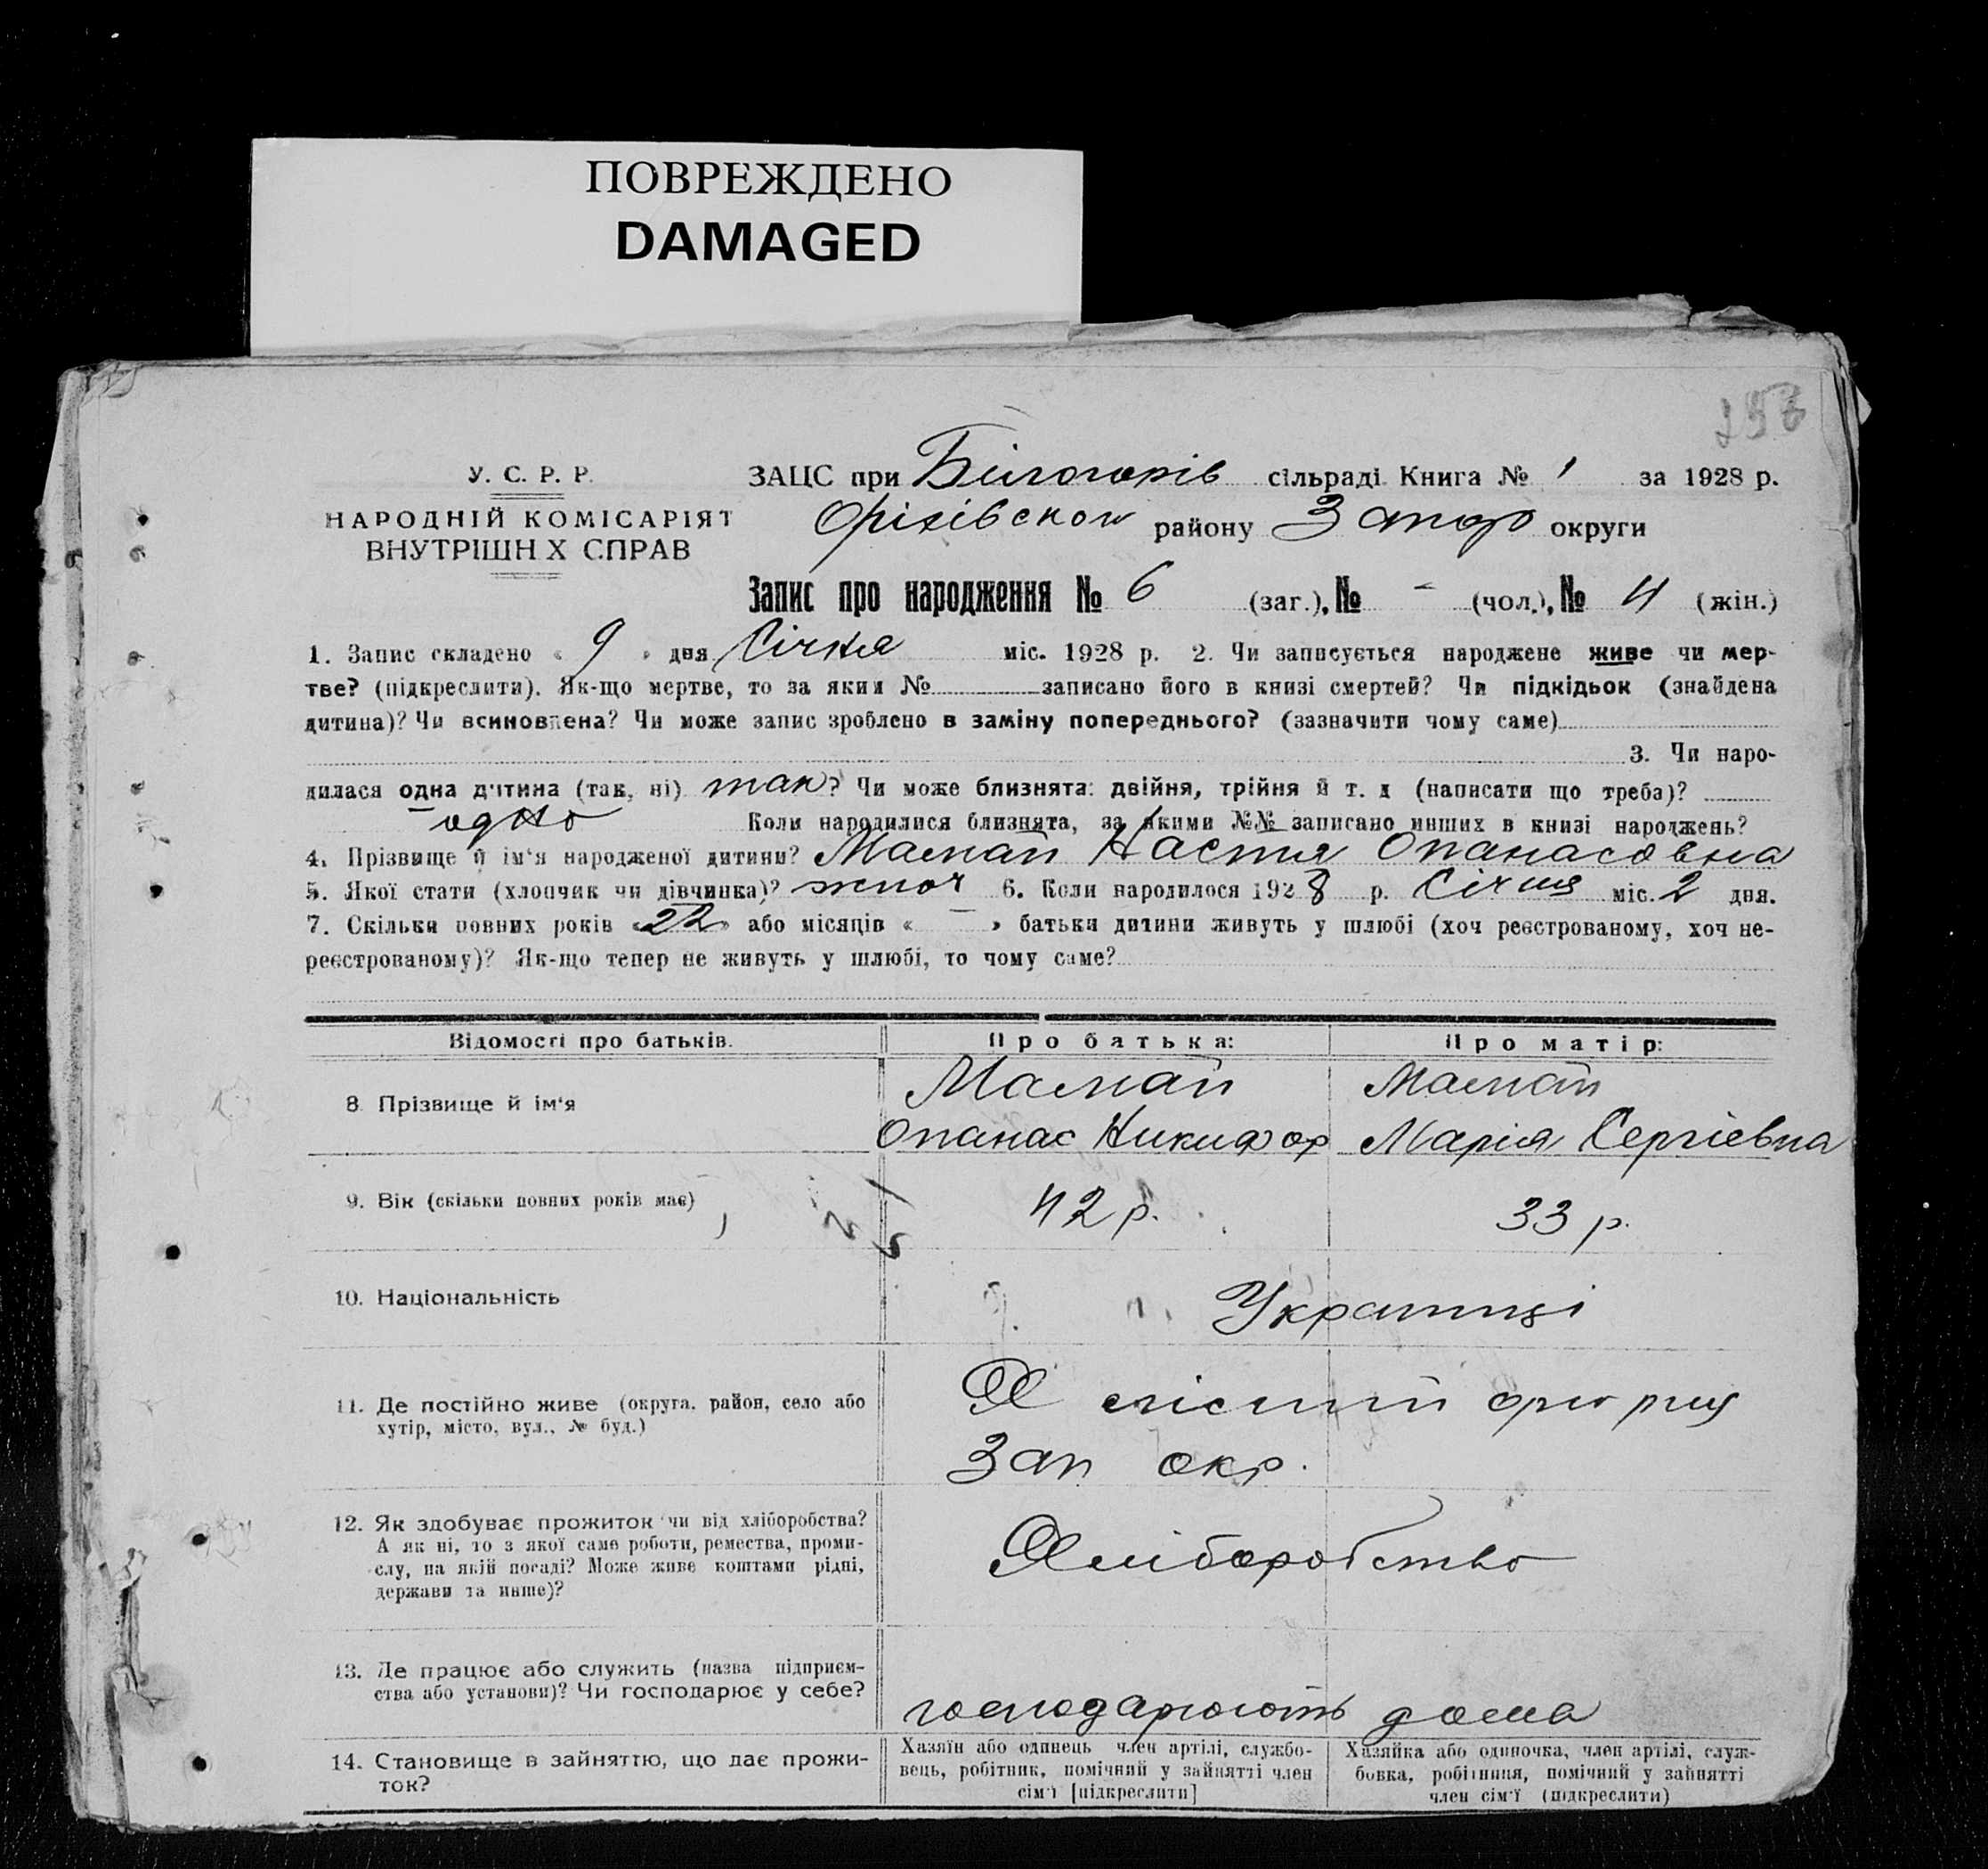 ПОВРЕЖДЕНО
DAMAGED
У. С. Р. Р.
НАРОДНІЙ КОМІСАРІЯТ
ВНУТРІШН Х СПРАВ
ЗАЦС при Білогорів сільраді Книга № 1 за 1928 р.
Оріхівськой району Запор округи
Запис про народження № 6 (заг.), № - (чол.), № 4 (жін.)
1. Запис складено « 9 » дня Січня міс. 1928 р. 2. Чи записується народжене живе чи мер-
тве? (підкреслити). Як-що мертве, то за яким № записано його в книзі смертей? Чи підкідьок (знайдена
дитина)? Чи всиновлена? Чи може запис зроблено в заміну попереднього? (зазначити чому саме)
3. Чи наро-
дилася одна дитина (так, ні) так? Чи може близнята: двійня, трійня й т. д (написати що треба)?
одно Коли народилися близнята, за якими №№ записано инших в книзі народжень?
4. Прізвище й ім'я народженої дитини? Мамай Настя Опанасовна
5. Якої стати (хлопчик чи дівчинка)? жіноч 6. Коли народилося 1928 р. Січня міс. 2 дня.
7. Скільки повних років «22» або місяців « — » батьки дитини живуть у шлюбі (хоч реєстрованому, хоч не-
реєстрованому)? Як-що тепер не живуть у шлюбі, то чому саме?
Відомості про батьків. Про батька: Про матір:
8 Прізвище й ім'я Мамай Мамай
Опанас Никифор Марія Сергіевна
9. Вік (скільки повних років має) 42 р. 33 р.
10. Національність Українці
11. Де постійно живе (округа, район, село або
хутір, місто, вул., № буд.)
Зап окр.
12. Як здобуває прожиток чи від хліборобства?
А як ні, то з якої саме роботи, ремества, проми-
слу, на якій посаді? Може живе коштами рідні,
держави та инше)?
Хліборобство
13. Де працює або служить (назва підприєм-
ства або установи)? Чи господарює у себе?
господарюють дома
14. Становище в зайняттю, що дає прожи-
ток?
Хазяїн або одинець член артілі, службо-
вець, робітник, помічний у зайнятті член
сім'ї [підкреслити]
Хазяйка або одиночка, член артілі, служ-
бовка, робітниця, помічний у зайнятті
член сім'ї (підкреслити)